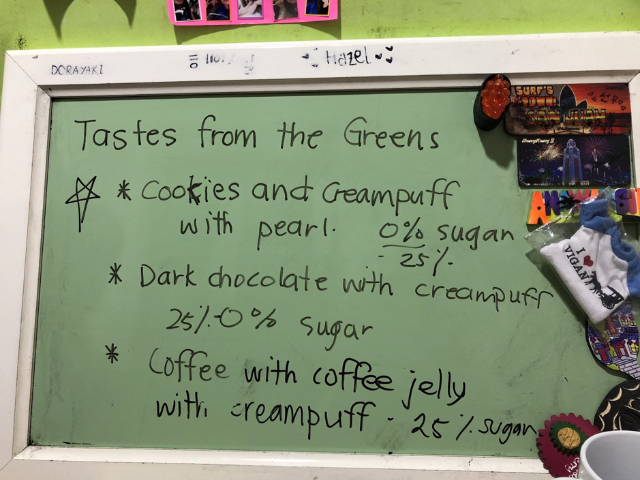 DORAYAKI
Hazel
Tastes from the Greens
* Cookies and Creampuff
with pearl. 0% sugan
- 25%.
* Dark chocolate with creampuff
25%-0% sugar
* Coffee with coffee jelly
with creampuff - 25% sugan
SURF'S
TOWN
SAN JUAN
I ♥
VIGAN